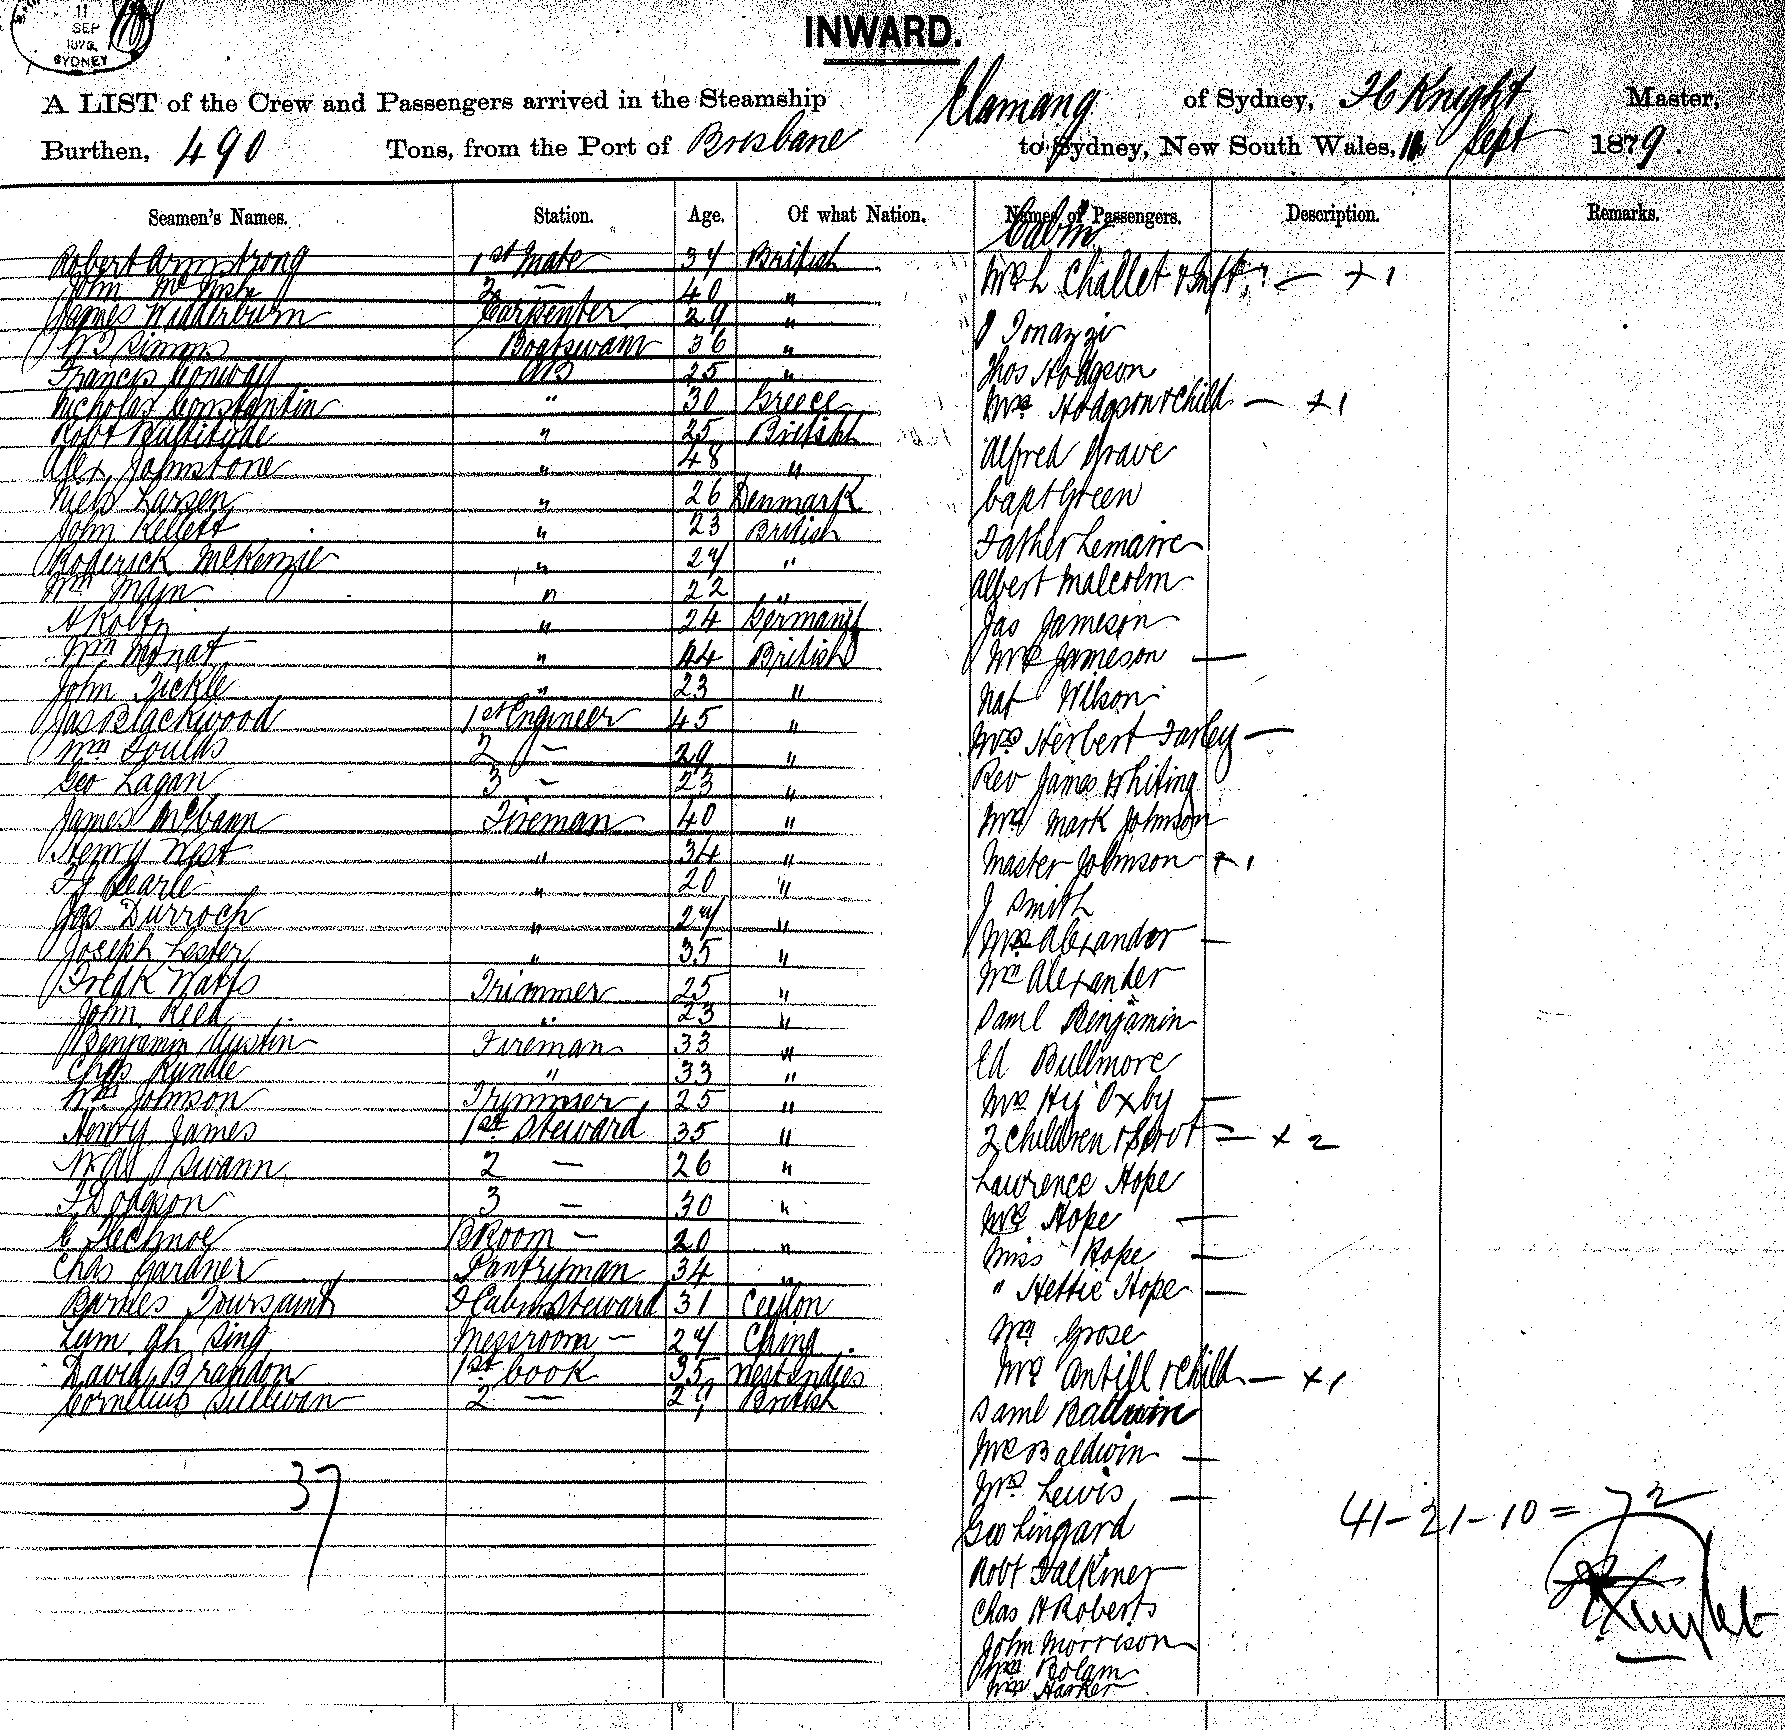 11
SEP
1879
SYDNEY
INWARD.
A LIST of the Crew and Passengers arrived in the Steamship Elamang of Sydney, H Knight Master,
Burthen, 490 Tons, from the Port of Brisbane to Sydney, New South Wales, 11 Sept 1879.
Seamen's Names. Station. Age. Of what Nation. Names of Passengers. Description. Remarks.
Cabin
Robert Armstrong 1st Mate 34 British
John 2 — 40 "
James Widderburn Carpenter 29 "
Simms Boatswain 36 "
Francis Conway AB 25 "
Nicholas Constantin " 30 Greece
Robt Bullitude " 25 British
Alex Johnstone " 48 "
Niels Larsen " 26 Denmark
John Kellett " 23 British
Roderick McKenzie " 24 "
Wm Main " 22 "
A Koltz " 24 Germany
Wm Monat " 44 British
John Tickle " 23 "
Jas Blackwood 1st Engineer 45 "
Wm Foulds 2 — 29 "
Geo Lagan 3 — 23 "
James McCann Fireman 40 "
Henry West " 34 "
Pearle " 20 "
Jas Durroch " 24 "
Joseph Lester " 35 "
Fredk Watts Trimmer 25 "
John Reed " 23 "
Benjamin Austin Fireman 33 "
Chas Ryndle " 33 "
Wm Johnson Trymmer 25 "
Henry James 1st Steward 35 "
Swann 2 — 26 "
F Dodgson 3 — 30 "
E BRoom — 20 "
Chas Gardner Pantryman 34 "
Barnes Toursaint F Cabin Steward 31 Ceylon
Lum Ah Sing Messroom — 24 China
David Brandon 1st Cook 35 West Indies
Cornelius Sullivan 2 — 29 British
37
Mrs L Challet & Inft — + 1
Tonazzi
Thos Hodgson
Mrs Hodgson & Child — + 1
Alfred Grave
Capt Green
Father Lemaire
Albert Malcolm
Jas Jameson
Mrs Jameson —
Nat Wilson
Mrs Herbert Farley —
Rev James Whiting
Mrs Mark Johnson
Master Johnson + 1
J Smith
Mrs Alexander —
Mr Alexander
Saml Benjamin
Ed Bullmore
Mrs Hy Oxby —
2 Children & Servt = — + 2
Lawrence Hope
Mrs Hope —
Miss Hope —
" Hettie Hope —
Mr Grose
Mrs Antill & Child — + 1
Saml Baldwin
Mrs Baldwin —
Mrs Lewis —
Geo Lingard
Robt Falkiner
Chas H Roberts
John Morrison
Mrs Bolam
Mrs Harker
41 - 21 - 10 = 72
H Knight